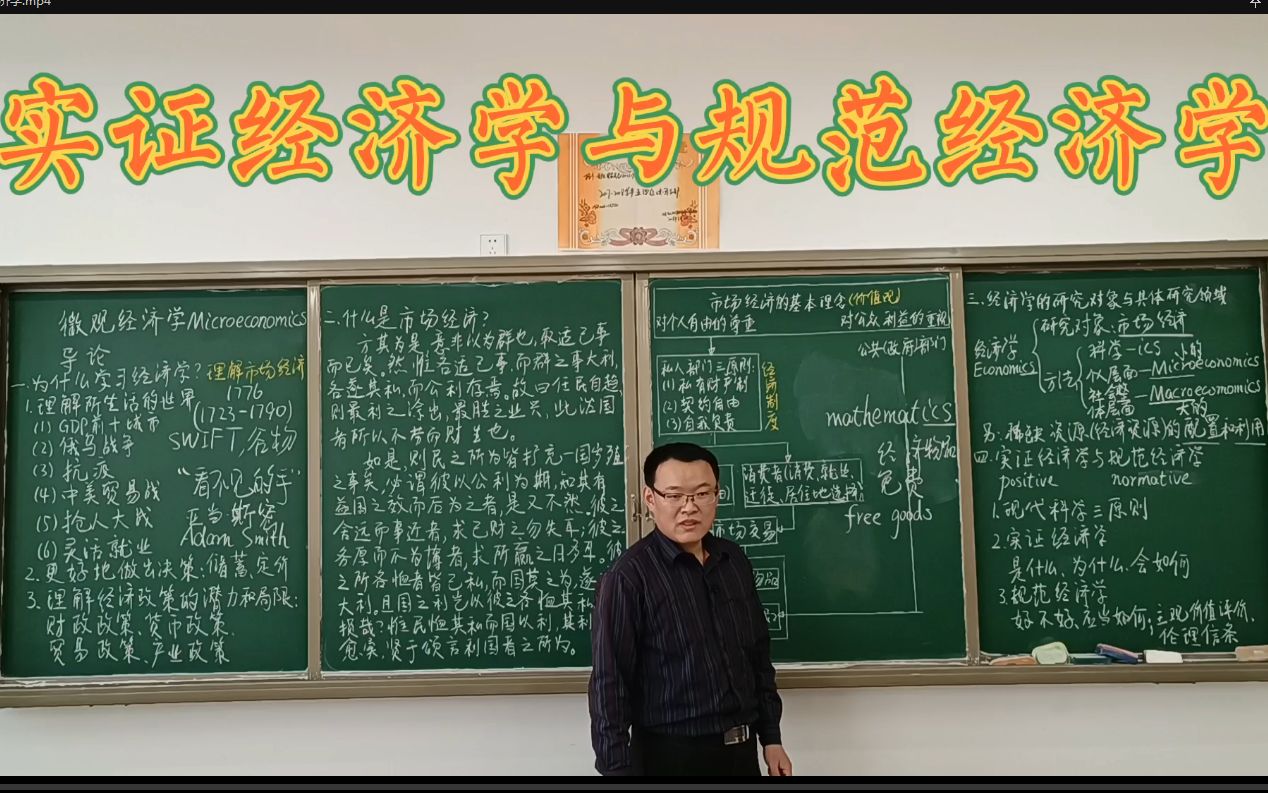 济学.mp4
实证经济学与规范经济学
微观经济学Microeconomics
导论
一.为什么学习经济学？理解市场经济
1.理解所生活的世界
1776
(1)GDP前十城市
(1723-1790)
(2)俄乌战争
SWIFT,谷物
(3)抗疫
“看不见的手”
(4)中美贸易战
(5)抢人大战
亚当·斯密
Adam Smith
(6)灵活就业
2.更好地做出决策:储蓄、定价
3.理解经济政策的潜力和局限:
财政政策、货币政策、
贸易政策、产业政策
二.什么是市场经济？
方其为是，意非以为群也，取适己事
而已矣。然惟各适己事，而群之事大利，
各遂其私，而公利存焉。故曰任民自趋，
则最利之涂出，最胜之业兴，此法国
者所以不劳而财生也。
如是，则民之所为皆扩充一国岁殖
之事矣，必谓彼以公利为期，知其有
益国之效而后为之者，是又不然。彼之
舍远而事近者，求己财之勿失耳；彼之
务厚而不为薄者，求所赢之日多耳。彼
之所各恤者皆己私，而国莫之为，遂
大利。且国之利岂以彼之各恤其私
损哉？惟民恤其私而国以利，其利
愈实，贤于颂言利国者之所为。
市场经济的基本理念(价值观)
对个人自由的尊重
对公众利益的重视
公共(政府)部门
私人部门三原则:
(1)私有财产制
(2)契约自由
(3)自我负责
经济制度
mathematics
消费者(消费、就业、
迁徙、居住地选择)
市场交易
经济物品
免费
free goods
物品
三.经济学的研究对象与具体研究领域
研究对象:市场经济
经济学
Economics
方法
科学-ics
小的
个人层面-Microeconomics
社会整
体层面-Macroeconomics
大的
另:稀缺资源(经济资源)的配置和利用
四.实证经济学与规范经济学
positive normative
1.现代科学三原则
2.实证经济学
是什么、为什么、会如何
3.规范经济学
好不好、应当如何；主观价值评价、
伦理信条